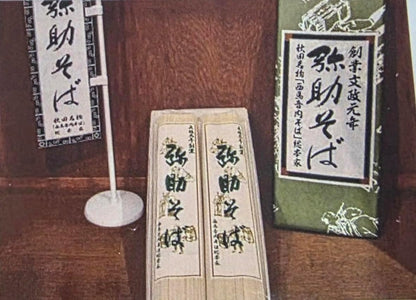 弥助そば
秋田名物
「西馬音内そば」
総本家
弥助そば
弥助そば
創業文政元年
弥助そば
秋田名物「西馬音内そば」総本家